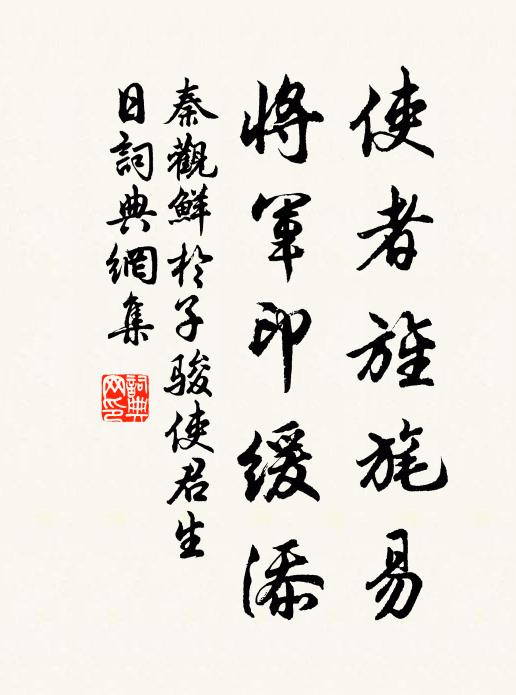 使者旌旄易
將軍印綬添
秦觀鮮於子駿使君生
日詞典網集
詞典
网印